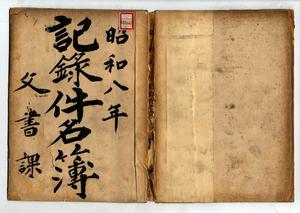 昭和八年
記錄件名簿
文書課